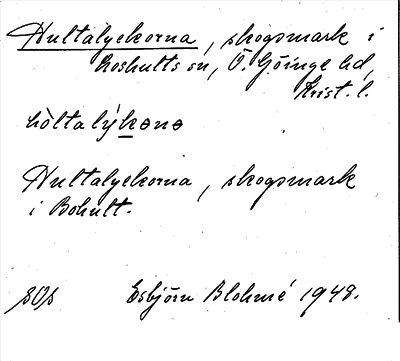 Hultalyckorna, skogsmark i
Loshults sn, Ö. Göinge hd,
Krist. l.
hòltalýkənə
Hultalyckorna, skogsmark
i Bohult.
SOS Esbjörn Blohmé 1948.